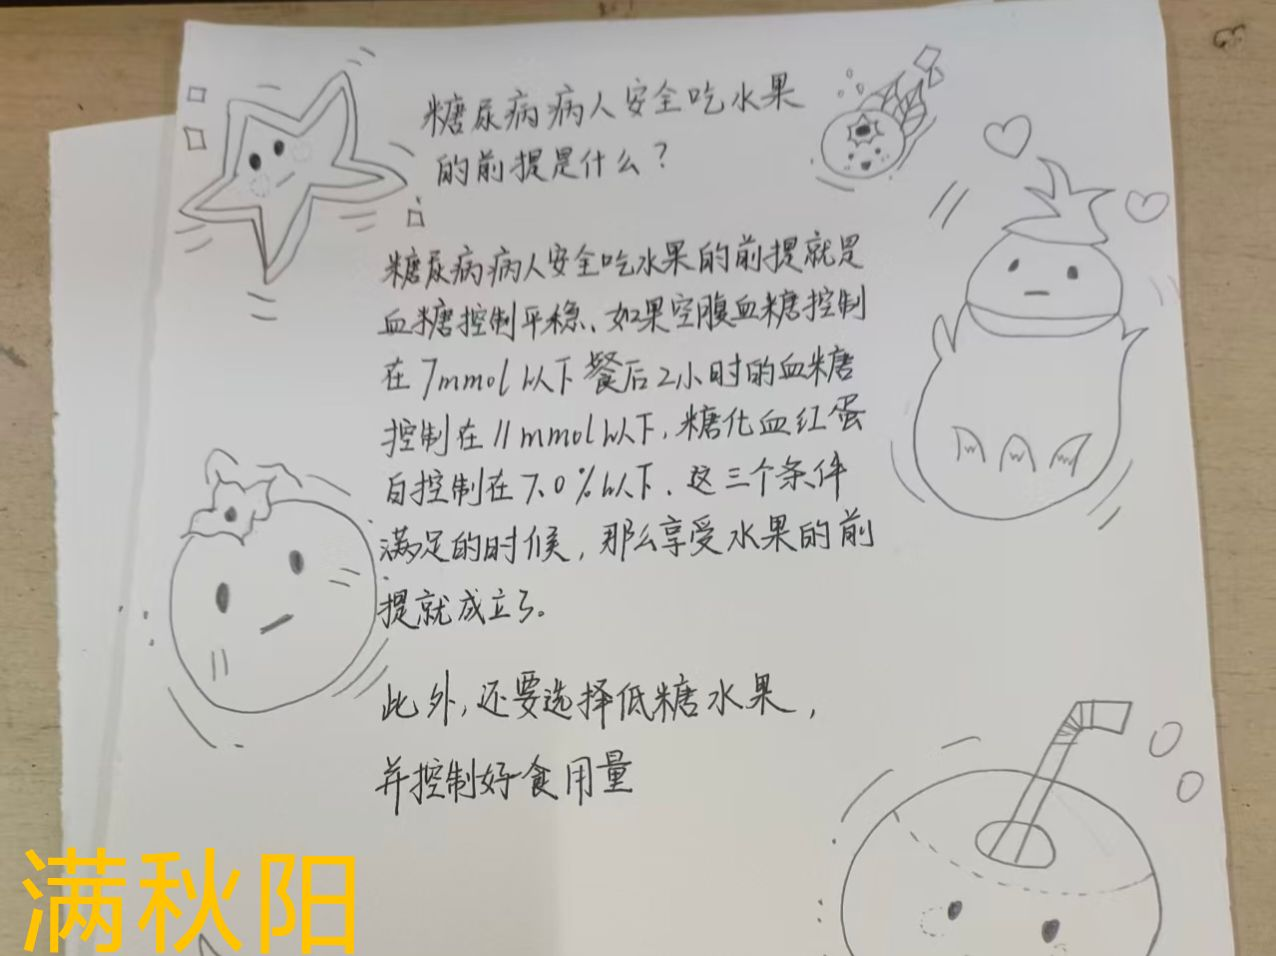 糖尿病病人安全吃水果
的前提是什么？
糖尿病病人安全吃水果的前提就是
血糖控制平稳、如果空腹血糖控制
在7mmol以下餐后2小时的血糖
控制在11mmol以下，糖化血红蛋
白控制在7.0%以下．这三个条件
满足的时候，那么享受水果的前
提就成立了。
此外，还要选择低糖水果，
并控制好食用量
满秋阳